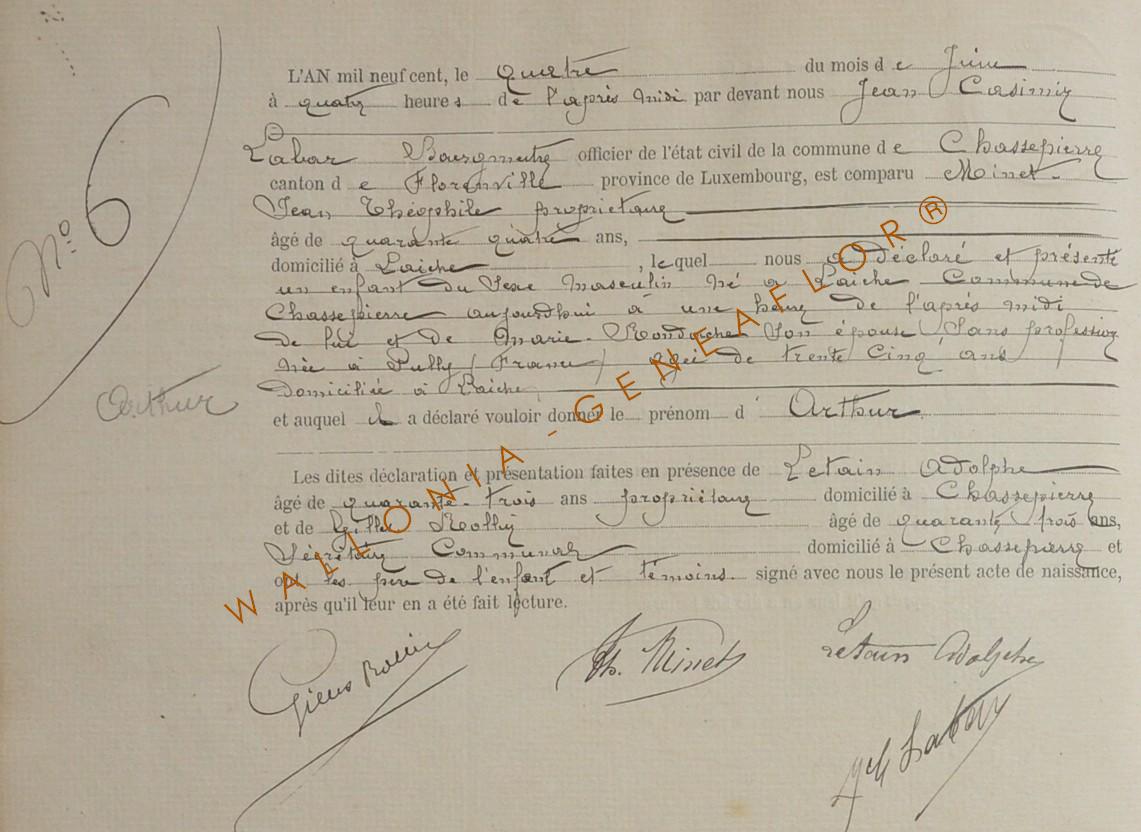 N° 6
L'AN mil neuf cent, le quatre du mois de Juin
à quatre heures de l'après midi par devant nous Jean Casimir
Labar Bourgmestre officier de l'état civil de la commune de Chassepierre
canton de Florenville province de Luxembourg, est comparu Minet
Jean Théophile propriétaire
âgé de quarante quatre ans,
domicilié à Laiche, lequel nous a déclaré et présenté
un enfant du sexe masculin né à Laiche Commune de
Chassepierre aujourdhui à une heure de l'après midi
de lui et de Marie Son épouse Sans profession
née à Pully (France) agée de trente cinq ans
Domiciliée à Laiche
Arthur
et auquel il a déclaré vouloir donner le prénom d' Arthur
Les dites déclaration et présentation faites en présence de Letain Adolphe
âgé de quarante-trois ans propriétaire domicilié à Chassepierre
et de Gilles âgé de quarante trois ans,
Secrétaire Communal domicilié à Chassepierre et
ont les père de l'enfant et témoins signé avec nous le présent acte de naissance,
après qu'il leur en a été fait lecture.
Gilles
Th. Minet
Letain Adolphe
Labar
WALLONIA - GENEAFLOR®